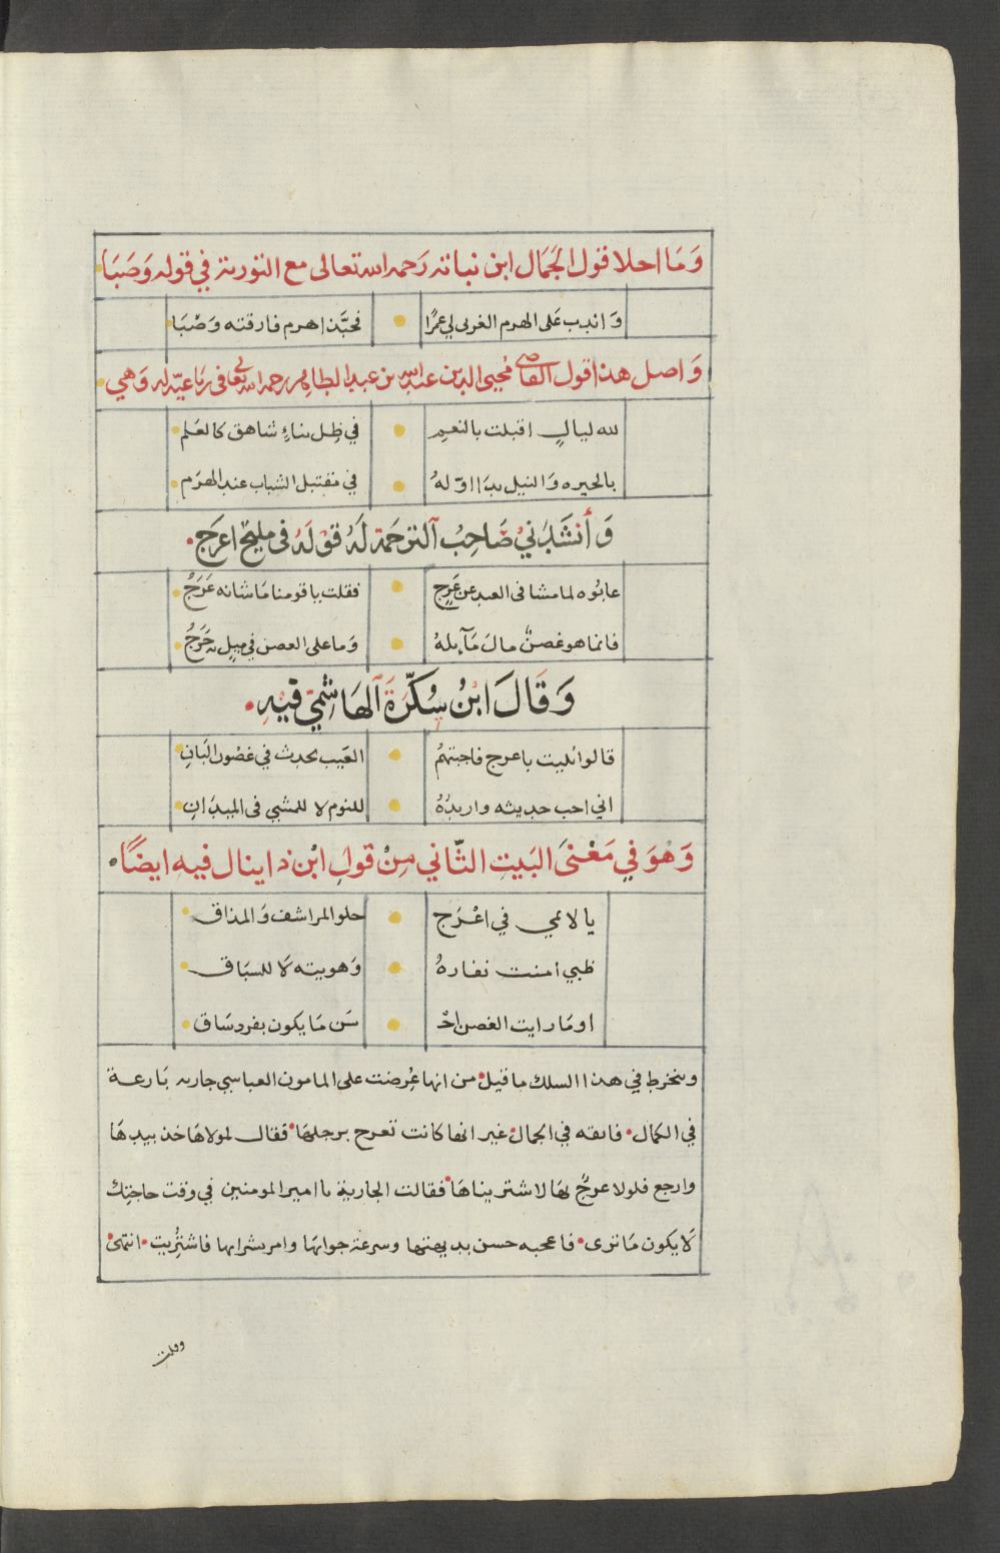 وَمَا احلا قول الجَمَال ابن نباته رَحمه الله تعالى مع التورية في قوله وَصَبَا
وَاندب عَلى الهرم الغربى لي عمرًا • فحبَّذا هرم فارقته وَصْبَا
وَاصل هذا قول القاضي مُحيى الدين عبد الله بن عبد الظاهر رحمه الله تعالى في رباعيّة له وَهي
لله ليالٍ اقبلت بالنعم • في ظِل بناءٍ شاهق كالعَلم
بالجيزه وَالنيل بدَا اوّلهُ • في مقتبل الشباب عند الهرَم
وَأنشَدَنيْ صَاحِبُ اَلترجَمَة لَهُ قوْلهُ فى مليحٍ اعرَج
عابُوه لما مشا فى العيد عن عَرَجٍ • فقلت يا قومنا مَا شانه عَرَجُ
فانما هو غصنٌ مالَ مَآيلهُ • وَما على الغصن في ميلٍ به حَرَجُ
وَقَالَ ابْنُ سُكَّرَة اَلهَاشِمِيّ فيْهِ
قالوا بُليت باعرج فاجبتهمُ • العَيب يحدث في غصُون البَانِ
اني احب حديثه واريدُهُ • للنوم لا للمشي فى الميدَانِ
وَهُوَ في مَعْنىَ البَيتِ الثّاني مِنْ قولِ ابْن ذاينال فيه ايضًا
يا لائمي في اعْرَج • حلو المراشف وَالمذاق
ظبي امنت نفارهُ • وَهويته لَا للسبَاق
اومَا رايت الغصن احْـ • سَن مَا يكون بفرد سَاق
وينخرط في هذا السلك ما قيل • من انها عُرضت على المامون العباسي جاريه بَارعة
في الكمال • فايقه في الجمال • غير انها كانت تعرج برجلهَا • فقال لمولاهَا خذ بيدهَا
وارجع فلولا عرجٌ بهَا لاشتريناهَا • فقالت الجارية يا امير المومنين في وقت حاجتك
لَا يكون مَا ترى • فاعجبه حسن بديهتها وسرعة جوابهَا وامر بشرايها فاشتُريت • انتهى
وقلت